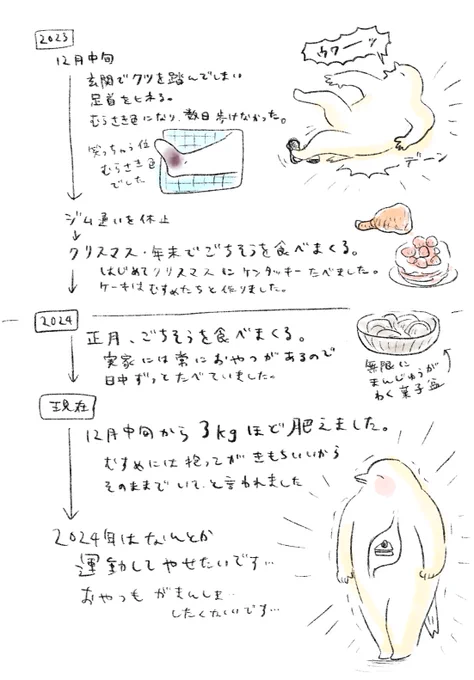 2023
12月中旬
玄関でクツを踏んでしまい
足首をヒネる。
むらさき色になり、数日歩けなかった。
笑っちゃう位
むらさき色
でした
ウワーッ
デーン
ジム通いを休止
クリスマス・年末でごちそうを食べまくる。
はじめてクリスマスにケンタッキーたべました。
ケーキはむすめたちと作りました。
2024
正月、ごちそうを食べまくる。
実家には常におやつがあるので
日中ずっとたべていました。
無限に
まんじゅうが
わく菓子盆
現在
12月中旬から3kgほど肥えました。
むすめには抱っこがきもちいいから
そのままでいて、と言われました
2024年はなんとか
運動してやせたいです…
おやつもがまんしま…
したくないです…